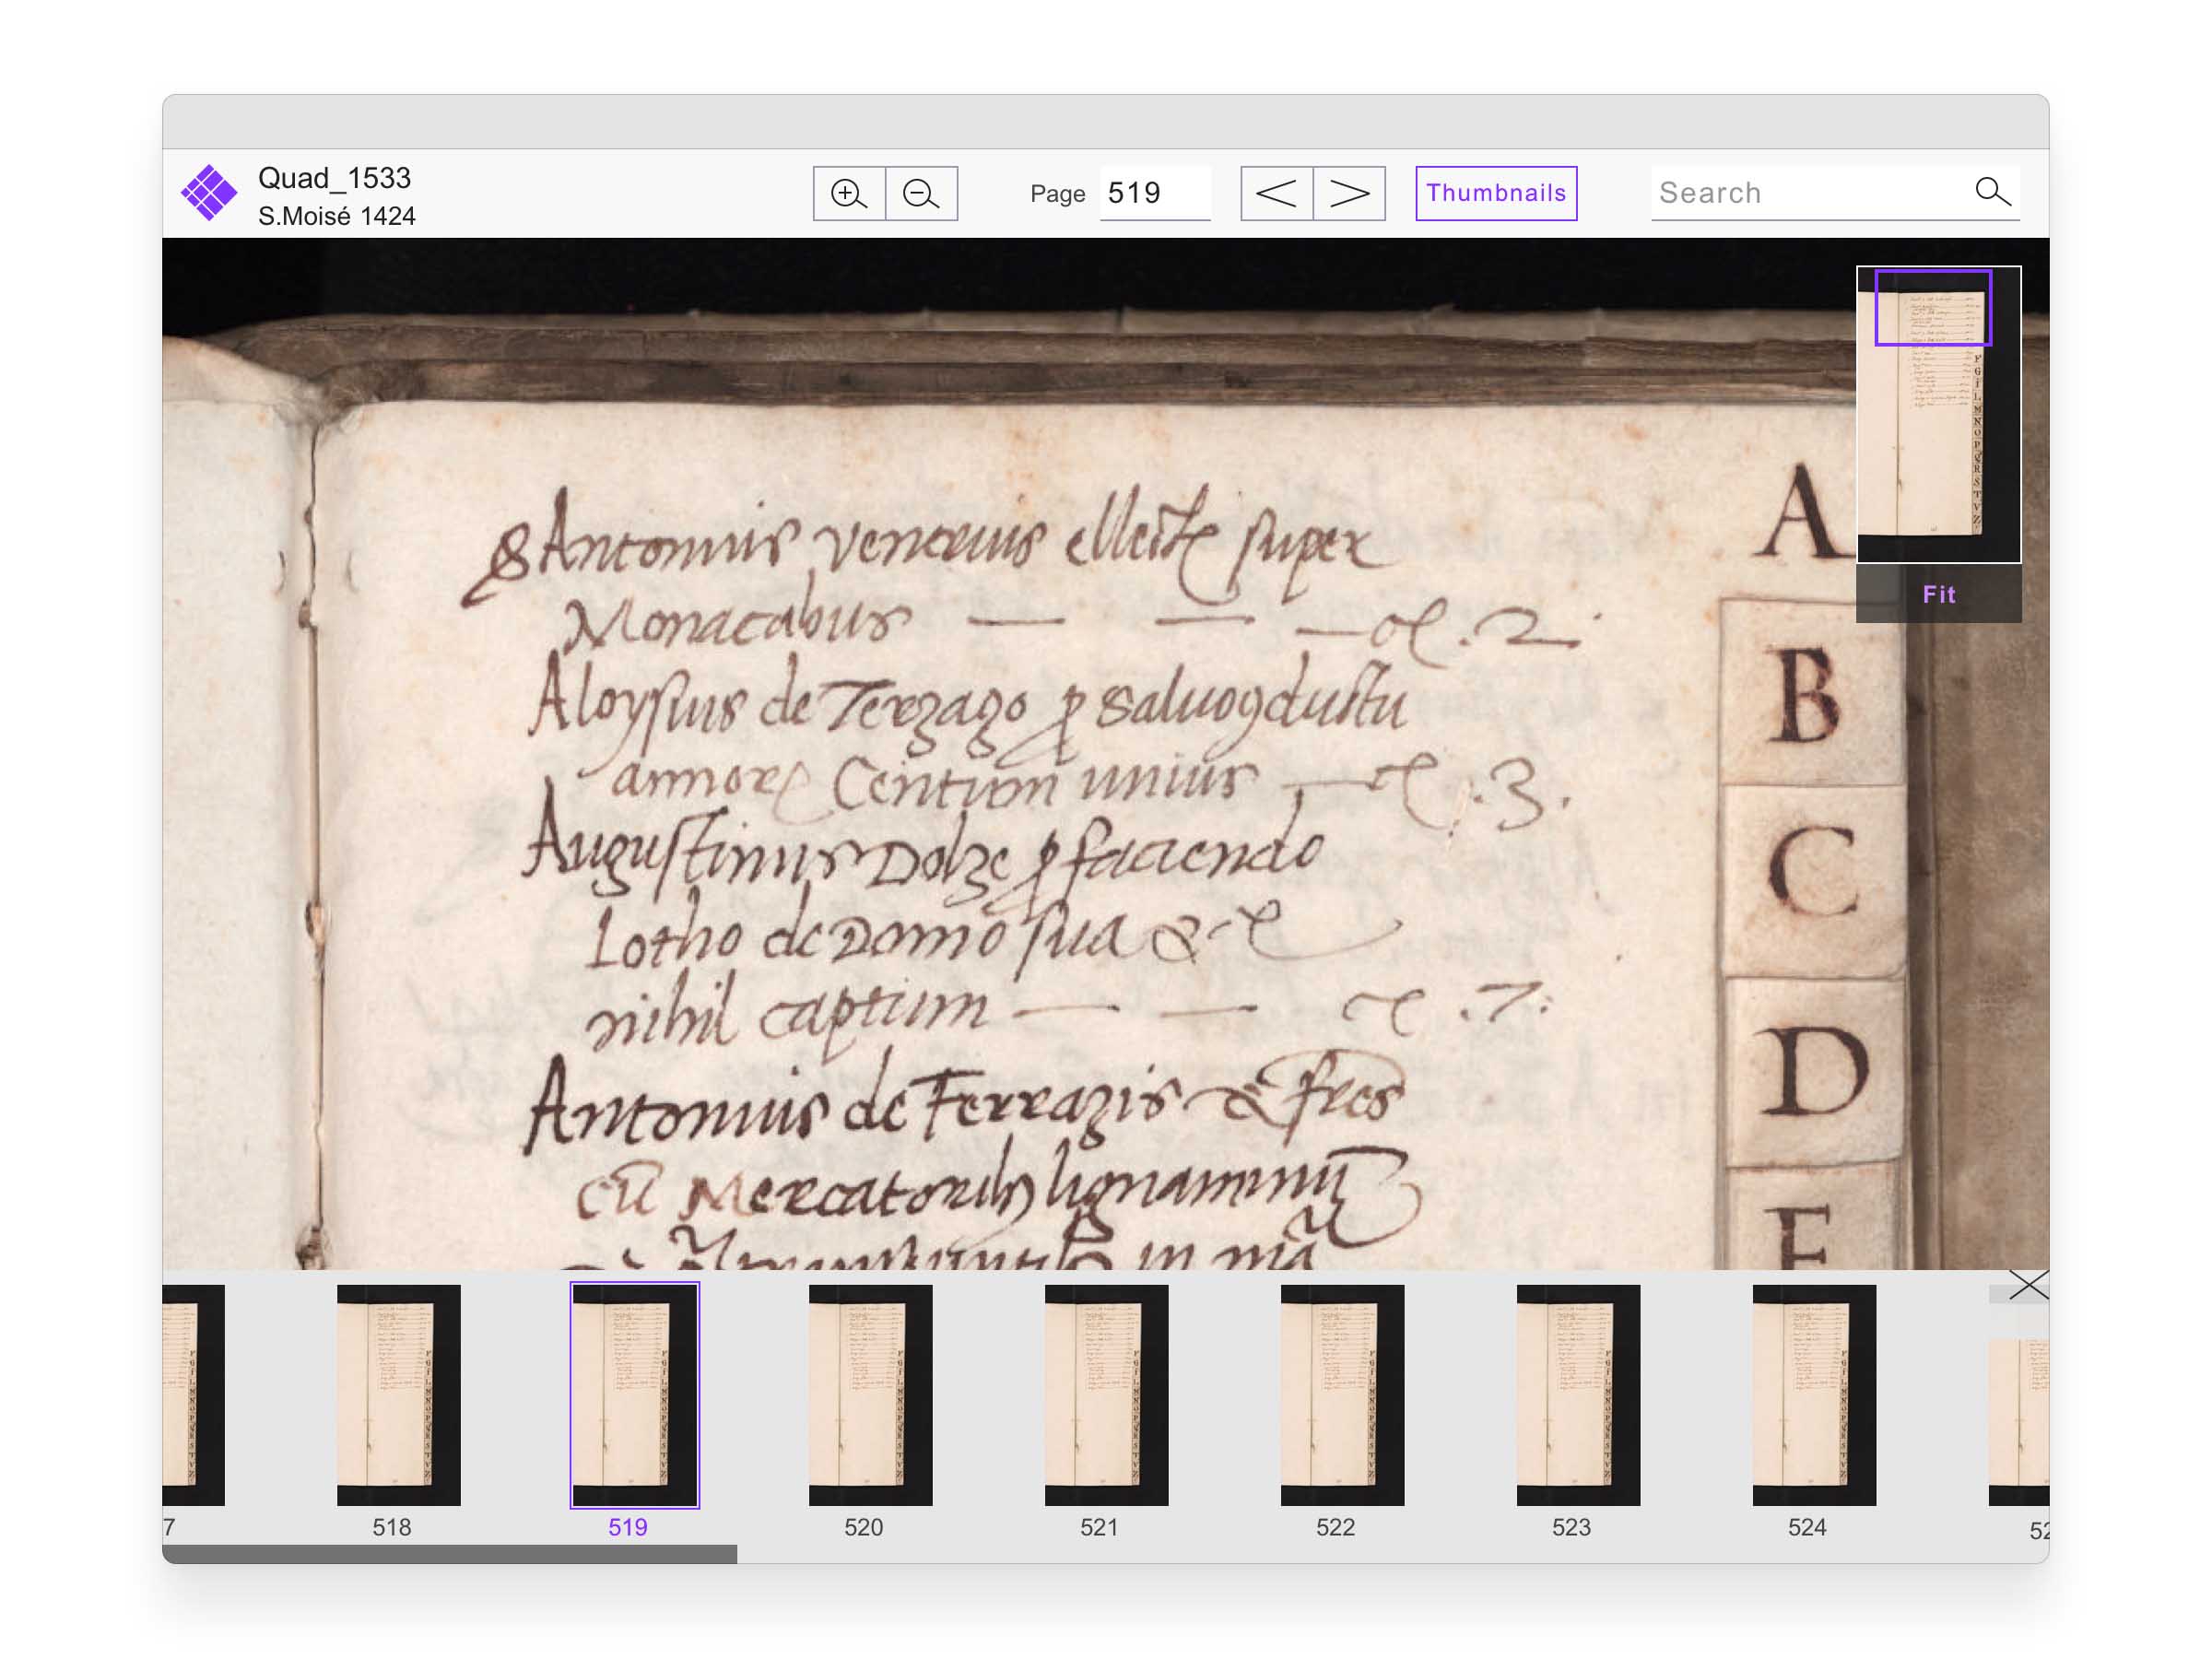 Quad_1533
S.Moisé 1424
Page 519
Thumbnails
Search
Antonius venerius ellect super
Monacabus — — — .2.
Aloysius de Terzago ꝑ saluoꝯductu
annorꝝ Centum unius — .3.
Augustinus Dolze ꝑ faciendo
Lotho de Domo sua &
nihil captum — — .7.
Antonius de Ferrazis & fres
cū Mercatoribꝫ lignaminū
in
A
B
C
D
E
F
G
I
L
M
N
O
P
Q
R
S
T
V
Z
Fit
7
518
519
520
521
522
523
524
52